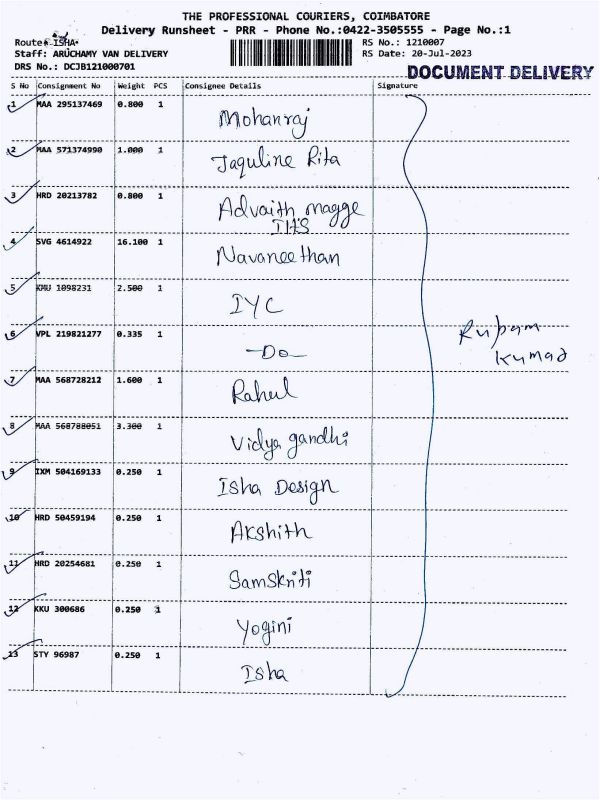 THE PROFESSIONAL COURIERS, COIMBATORE
Delivery Runsheet - PRR - Phone No.:0422-3505555 - Page No.:1
Route: ISHA RS No.: 1210007
Staff: ARUCHAMY VAN DELIVERY RS Date: 20-Jul-2023
DRS No.: DCJB121000701
DOCUMENT DELIVERY
S No Consignment No Weight PCS Consignee Details Signature
1 MAA 295137469 0.800 1 Mohanraj
2 MAA 571374990 1.000 1 Jaquline Rita
3 HRD 20213782 0.800 1 Advaith magge
IHS
4 SVG 4614922 16.100 1 Navaneethan
5 KMU 1098231 2.500 1 IYC
6 VPL 219821277 0.335 1 -Do-
7 MAA 568728212 1.600 1 Rahul
8 MAA 568788051 3.300 1 Vidya gandhi
9 IXM 504169133 0.250 1 Isha Design
10 HRD 50459194 0.250 1 Akshith
11 HRD 20254681 0.250 1 Samskriti
12 KKU 300686 0.250 1 Yogini
13 STY 96987 0.250 1 Isha
Rupam
Kumar